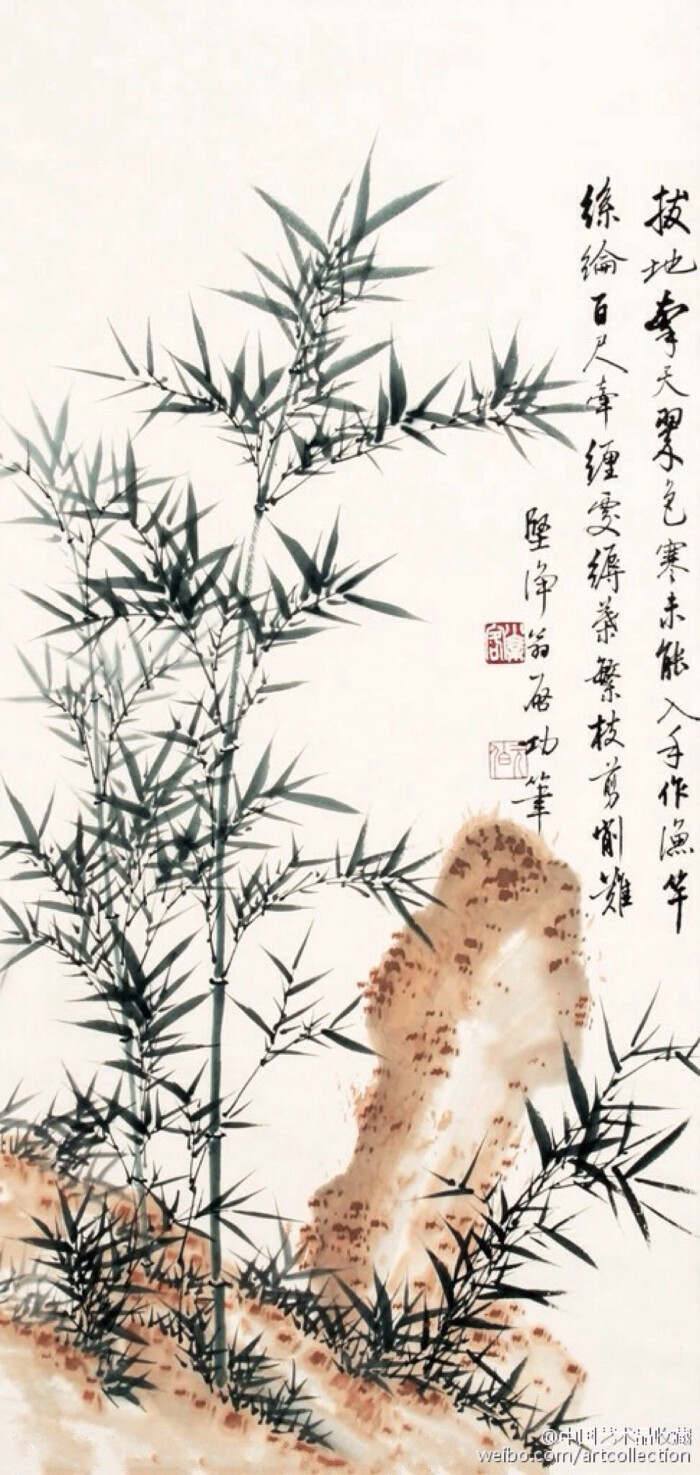 拔地牽天翠色寒未能入手作漁竿
絲綸百尺牽纏處縟葉繁枝剪削難
堅淨翁啟功筆
@中国艺术品收藏
weibo.com/artcollection